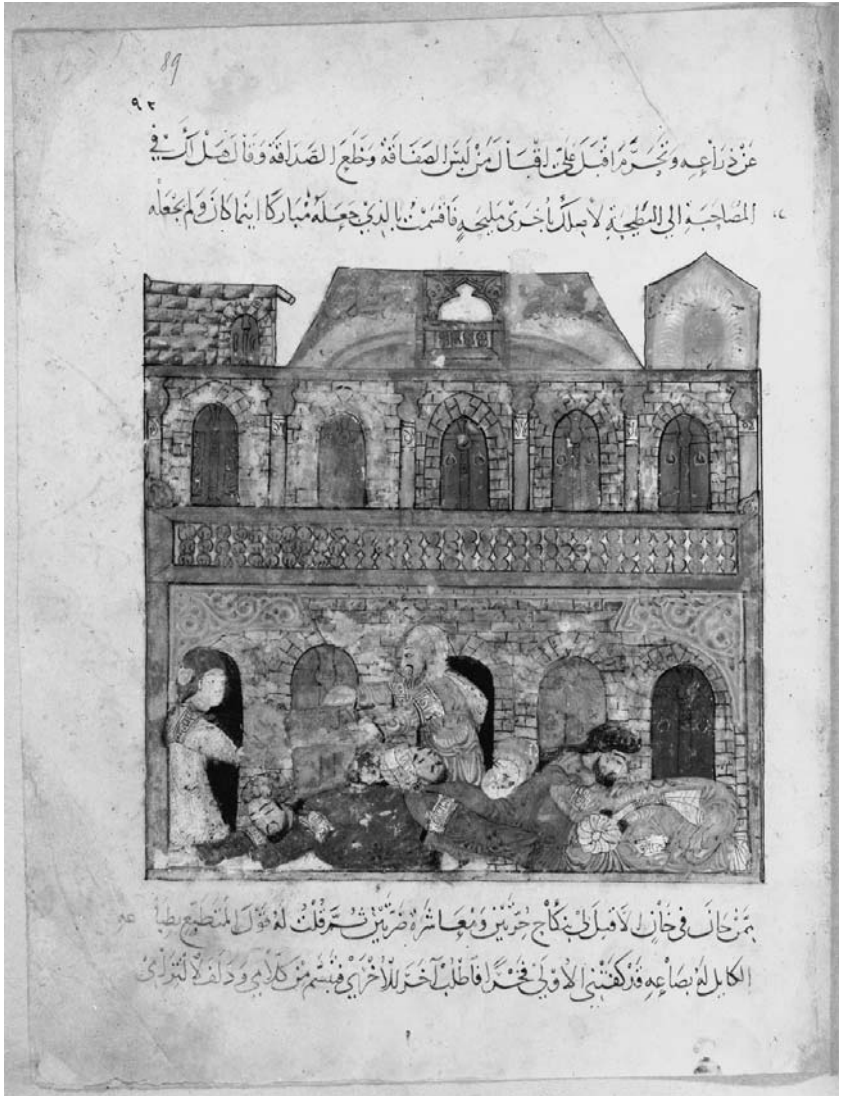 89
٩٢
عن ذراعيه وتحزم اقبل علي اقبال من لبس الصفاقة وخلع الصداقة وقال هل لك في
المصاحبة الى البطيحة باخرى مليحة فاقسمت بالذي جعله مباركا اينما كان ولم يجعله
ممن خان في خان لا قبل لي بنكاح حرتين ومعاشرة ضرتين ثم قلت له قول المتطبع بطباعه
الكايل له بصاعه قد كفتني الاولى فخرا فاطلب آخر للاخرى فتبسم من كلامي ودلف لالتزامي